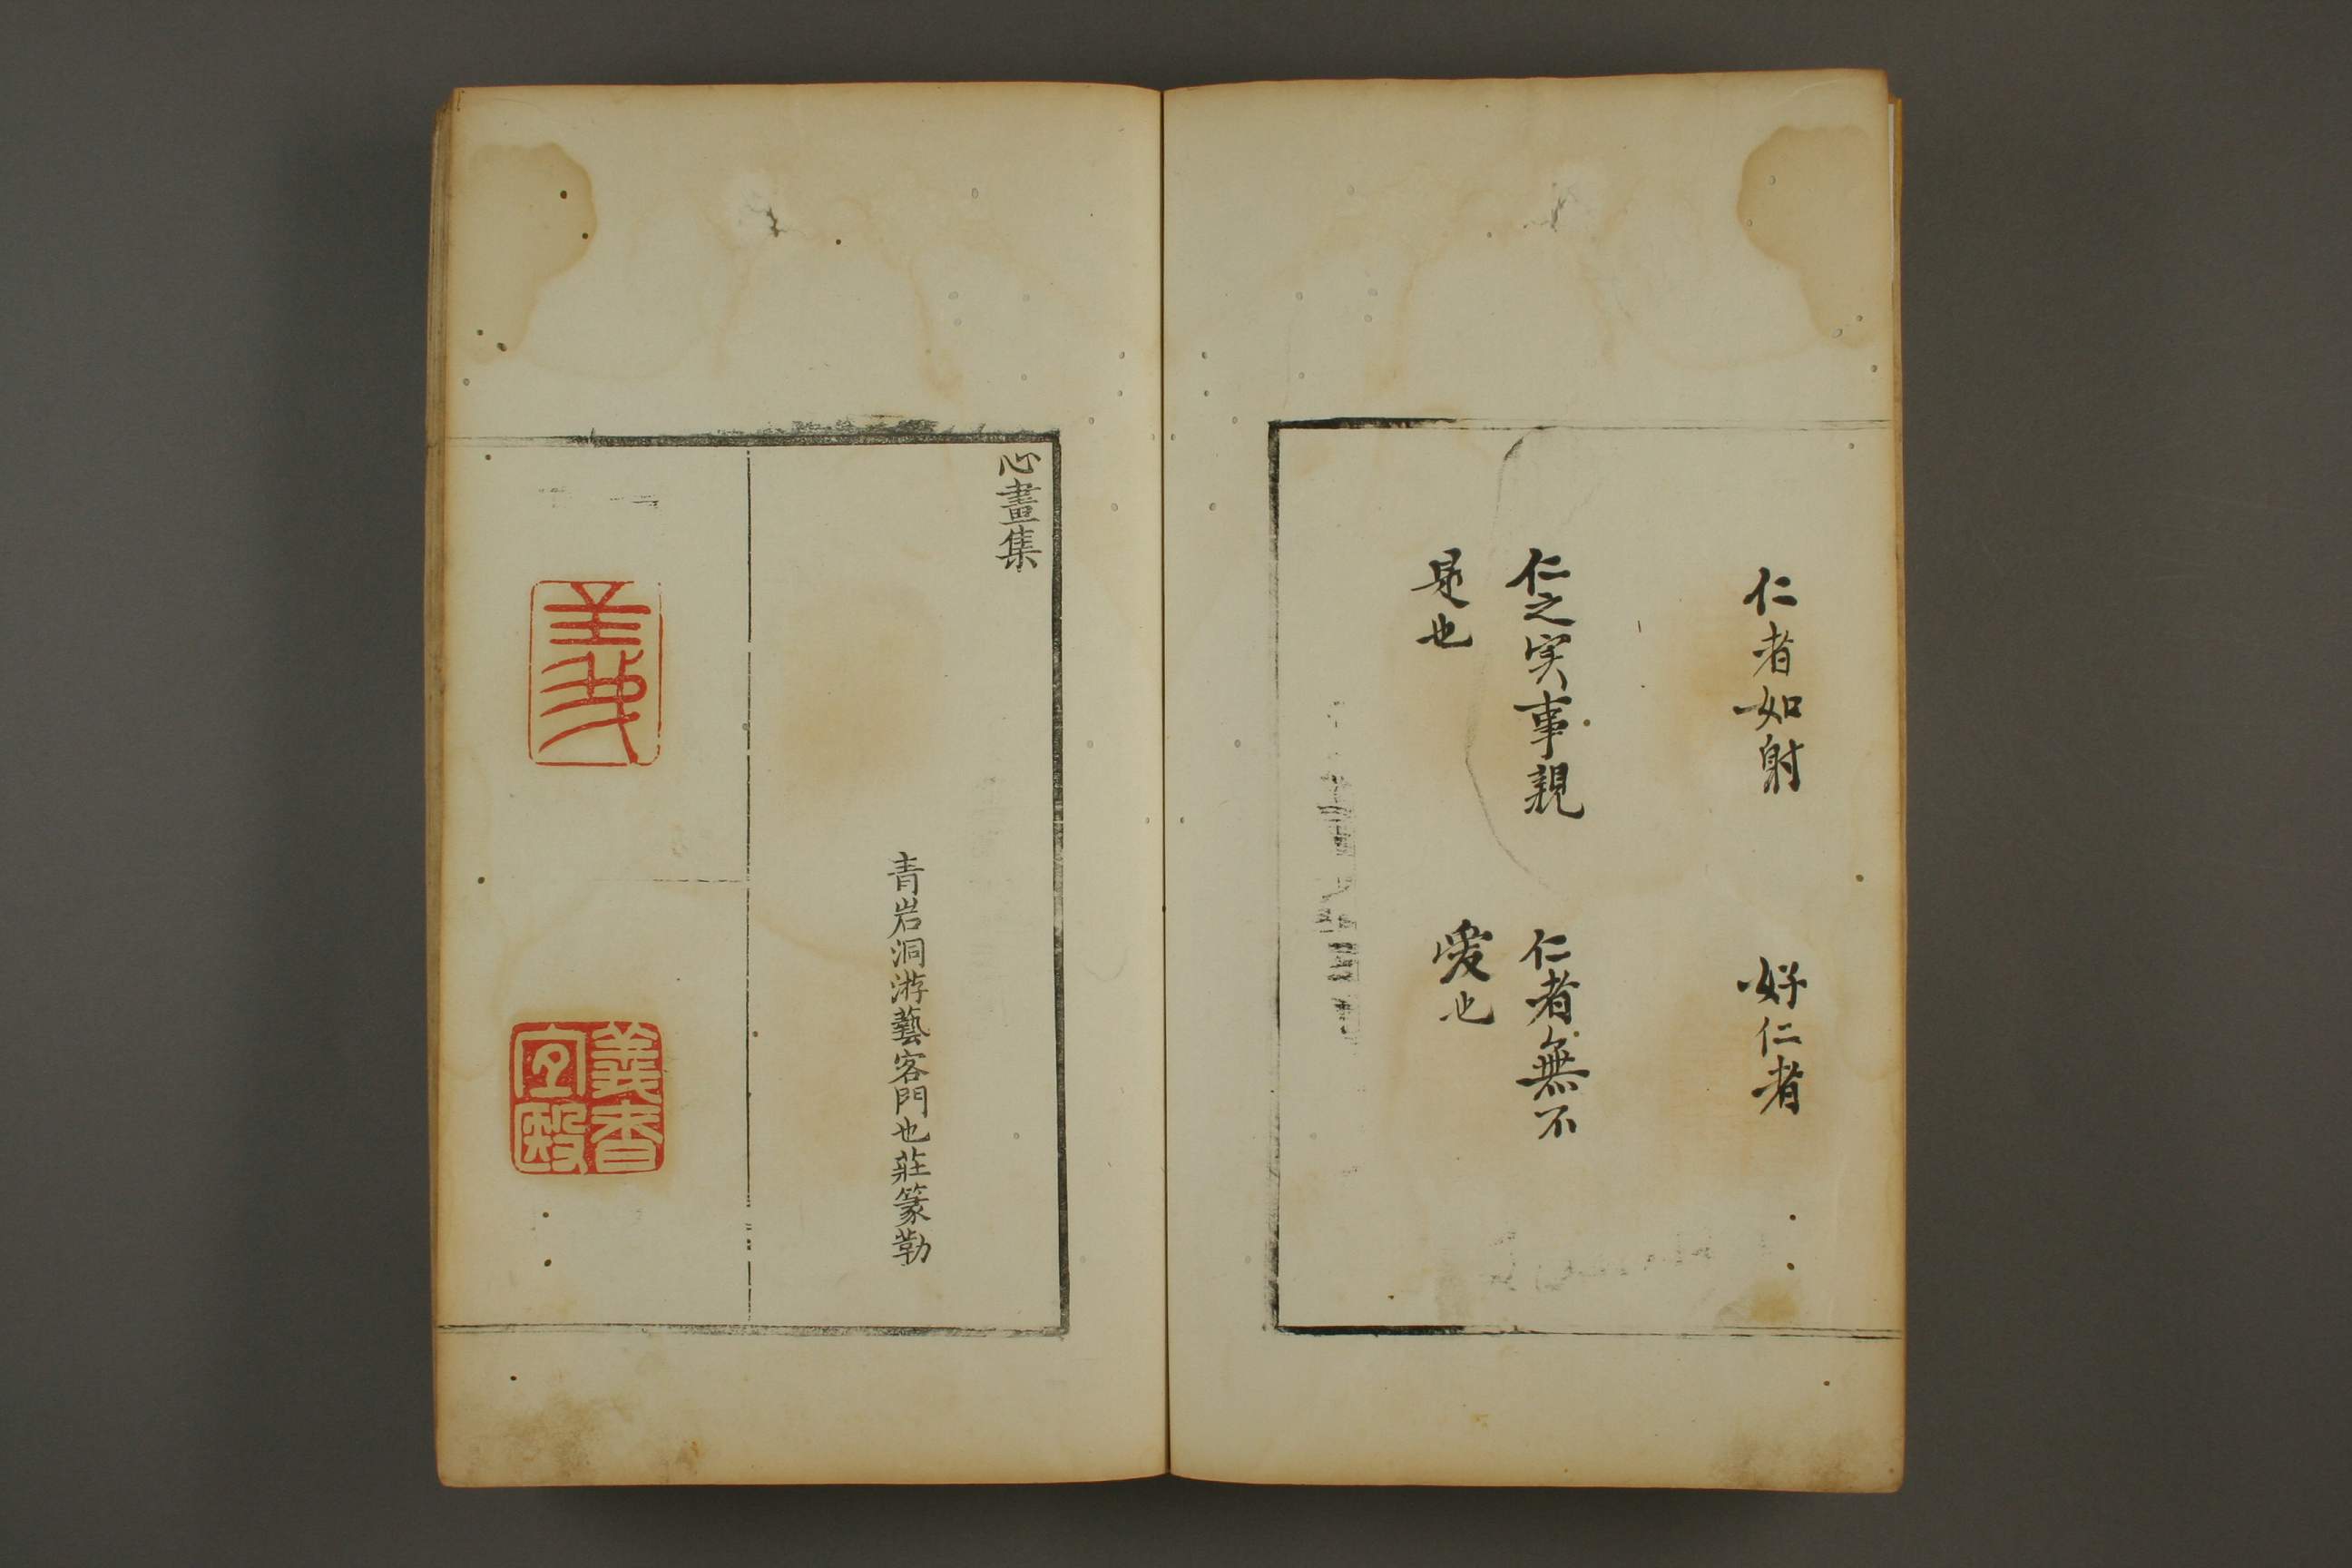 仁者如射
好仁者
仁之実事親
是也
仁者無不
愛也
心畫集
青岩洞游藝客門也莊篆勒
義
義者
宜殹